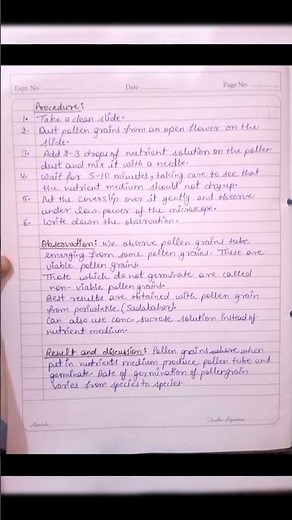 Expt. No.
Date
Page No.
Procedure:
1. Take a clean slide.
2. Dust pollen grains from an open flower on the
slide.
3. Add 2-3 drops of nutrient solution on the pollen
dust and mix it with a needle.
4. Wait for 5-10 minutes, taking care to see that
the nutrient medium should not dry up.
5. Put the coverslip over it gently and observe
under low power of the microscope.
6. Write down the observation.
Observation: We observe pollen grains tube
emerging from some pollen grains. These are
viable pollen grains.
Those which do not germinate are called
non-viable pollen grains.
Best results are obtained with pollen grain
from periwinkle. (Sadabahar).
Can also use conc. sucrose solution instead of
nutrient medium.
Result and discussion: Pollen grains when
put in nutrient medium produce pollen tube and
germinate. Rate of germination of pollengrain
varies from species to species.
Teacher Signature